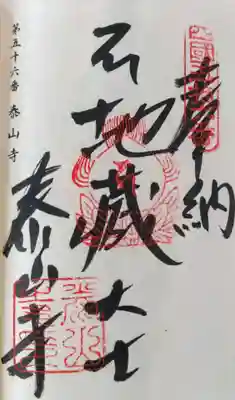 奉納
地蔵大士
泰山寺
第五十六番 泰山寺